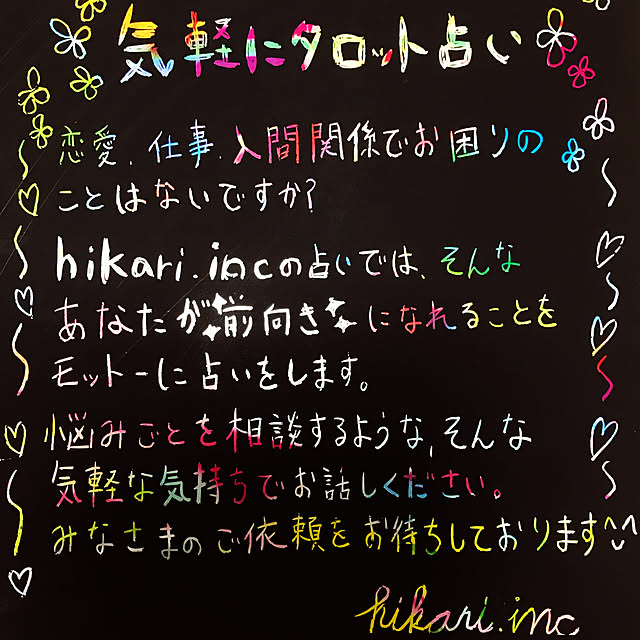 気軽にタロット占い
恋愛、仕事、人間関係でお困りの
ことはないですか?
hikari.incの占いでは、そんな
あなたが前向きになれることを
モットーに占いをします。
悩みごとを相談するような、そんな
気軽な気持ちでお話しください。
みなさまのご依頼をお待ちしております^^
hikari.inc